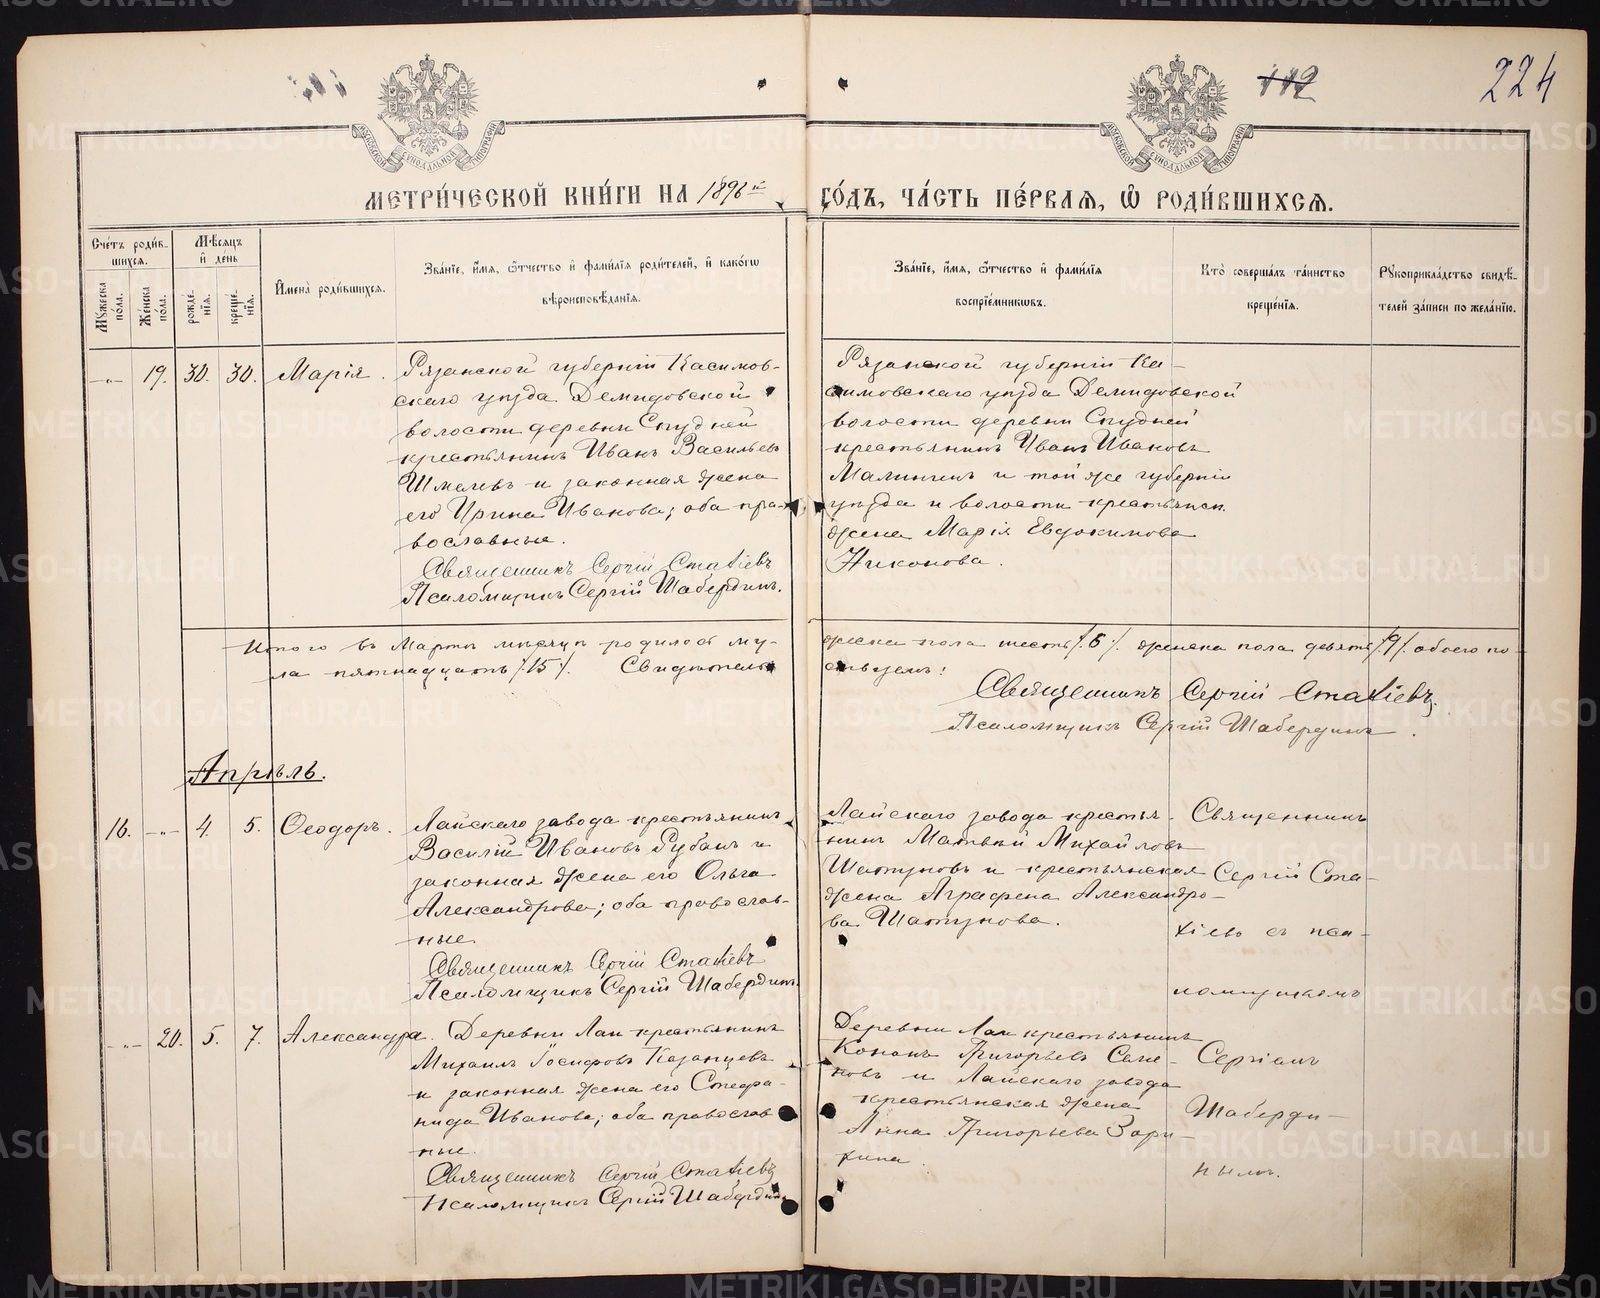 224
112
МОСКОВСКОЙ СѴНОДАЛЬНОЙ ТИПОГРАФІИ
МОСКОВСКОЙ СѴНОДАЛЬНОЙ ТИПОГРАФІИ
МЕТРИ́ЧЕСКОЙ КНИ́ГИ НА 1896й ГО́ДЪ, ЧА́СТЬ ПЕ́РВАЯ, Ѽ РОДИ́ВШИХСЯ.
Сче́тъ роди́в-
шихся.
Мꙋжеска по́ла.
Же́нска по́ла.
Мѣ́сяцъ
и́ де́нь
рожде́нїя.
креще́нїя.
И҆мена̀ роди́вшихся.
Зва́нїе, и҆́мя, ѻ҆́тчество и҆ фами́лїя роди́телей, и҆ како́гѡ
вѣроисповѣ́данїя.
Зва́нїе, и҆́мя, ѻ҆́тчество и҆ фами́лїя
воспрїе́мниковъ.
Кто̀ соверша́лъ та́инство
креще́нїя.
Рꙋкоприкла́дство свидѣ́-
телей за́писи по жела́нїю.
-„-
19.
30.
30.
Марія.
Рязанской губерніи Касимов-
скаго уѣзда Демидовской
волости деревни Студней
крестьянинъ Иванъ Васильевъ
Шмелевъ и законная жена
его Ирина Иванова; оба пра-
вославные.
Священникъ Сергій Стахіевъ
Псаломщикъ Сергій Шабердинъ.
Рязанской губерніи Ка-
симовскаго уѣзда Демидовской
волости деревни Студней
крестьянинъ Иванъ Ивановъ
и той же губерніи
уѣзда и волости крестьянск.
жена Марія Евдокимова
Никонова.
Итого въ Мартѣ мѣсяцѣ родилось му-
жеска пола шесть /6/. женска пола девять /9/. обоего по-
ла пятнадцать /15/. Свидѣтель-
ствуемъ:
Священникъ Сергій Стахіевъ.
Псаломщикъ Сергій Шабердинъ.
Апрѣль.
16.
-„-
4.
5.
Ѳеодоръ.
Лайскаго завода крестьянинъ
Василій Ивановъ Рубанъ и
законная жена его Ольга
Александрова; оба православ-
ные.
Священникъ Сергій Стахіевъ
Псаломщикъ Сергій Шабердинъ.
Лайскаго завода крестья-
нинъ Матвѣй Михайловъ
Шатуновъ и крестьянская
жена Аграфена Александро-
ва Шатунова.
Священникъ
Сергій Ста-
хіевъ съ пса-
ломщикомъ
Сергіемъ
Шаберди-
нымъ.
-„-
20.
5.
7.
Александра.
Деревни Лаи крестьянинъ
Михаилъ Іосифовъ Казанцевъ
и законная жена его Стефа-
нида Иванова; оба православ
ные.
Священникъ Сергій Стахіевъ
Псаломщикъ Сергій Шабердинъ
Деревни Лаи крестьянинъ
Кононъ Григорьевъ
и Лайскаго завода
крестьянская жена
Анна Григорьева